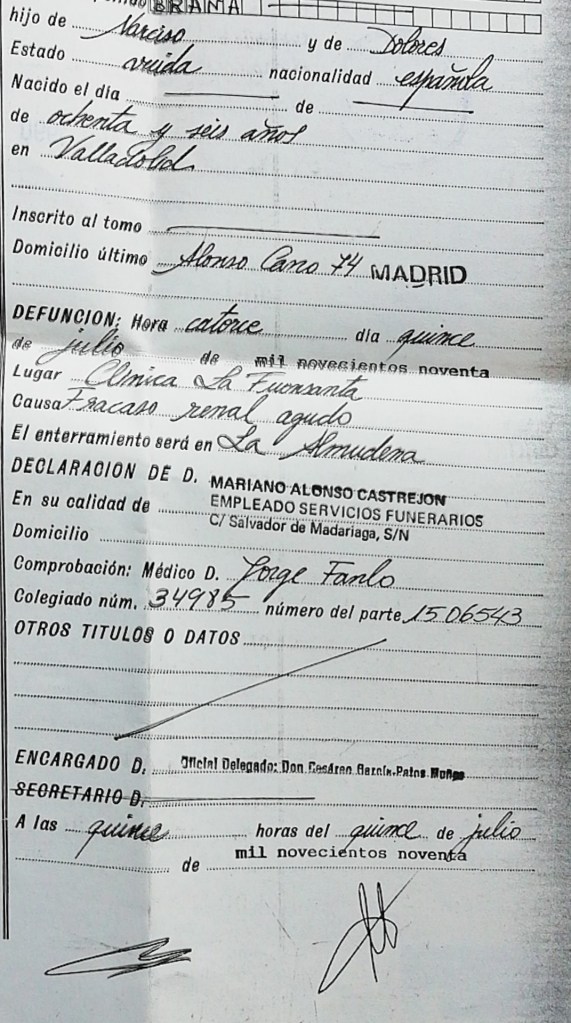 BRAMA
hijo de Narciso y de Dolores
Estado viuda nacionalidad española
Nacido el día de
de ochenta y seis años
en Valladolid
Inscrito al tomo
Domicilio último Alonso Cano 74 MADRID
DEFUNCION: Hora catorce día quince
de julio de mil novecientos noventa
Lugar Clínica La Fuensanta
Causa Fracaso renal agudo
El enterramiento será en La Almudena
DECLARACION DE D. MARIANO ALONSO CASTREJON
En su calidad de EMPLEADO SERVICIOS FUNERARIOS
C/ Salvador de Madariaga, S/N
Domicilio
Comprobación: Médico D. Jorge Fanlo
Colegiado núm. 34985 número del parte 1506543
OTROS TITULOS O DATOS
ENCARGADO D. Oficial Delegado: Don Cesáreo García-Patos
SECRETARIO D.
A las quince horas del quince de julio
de mil novecientos noventa